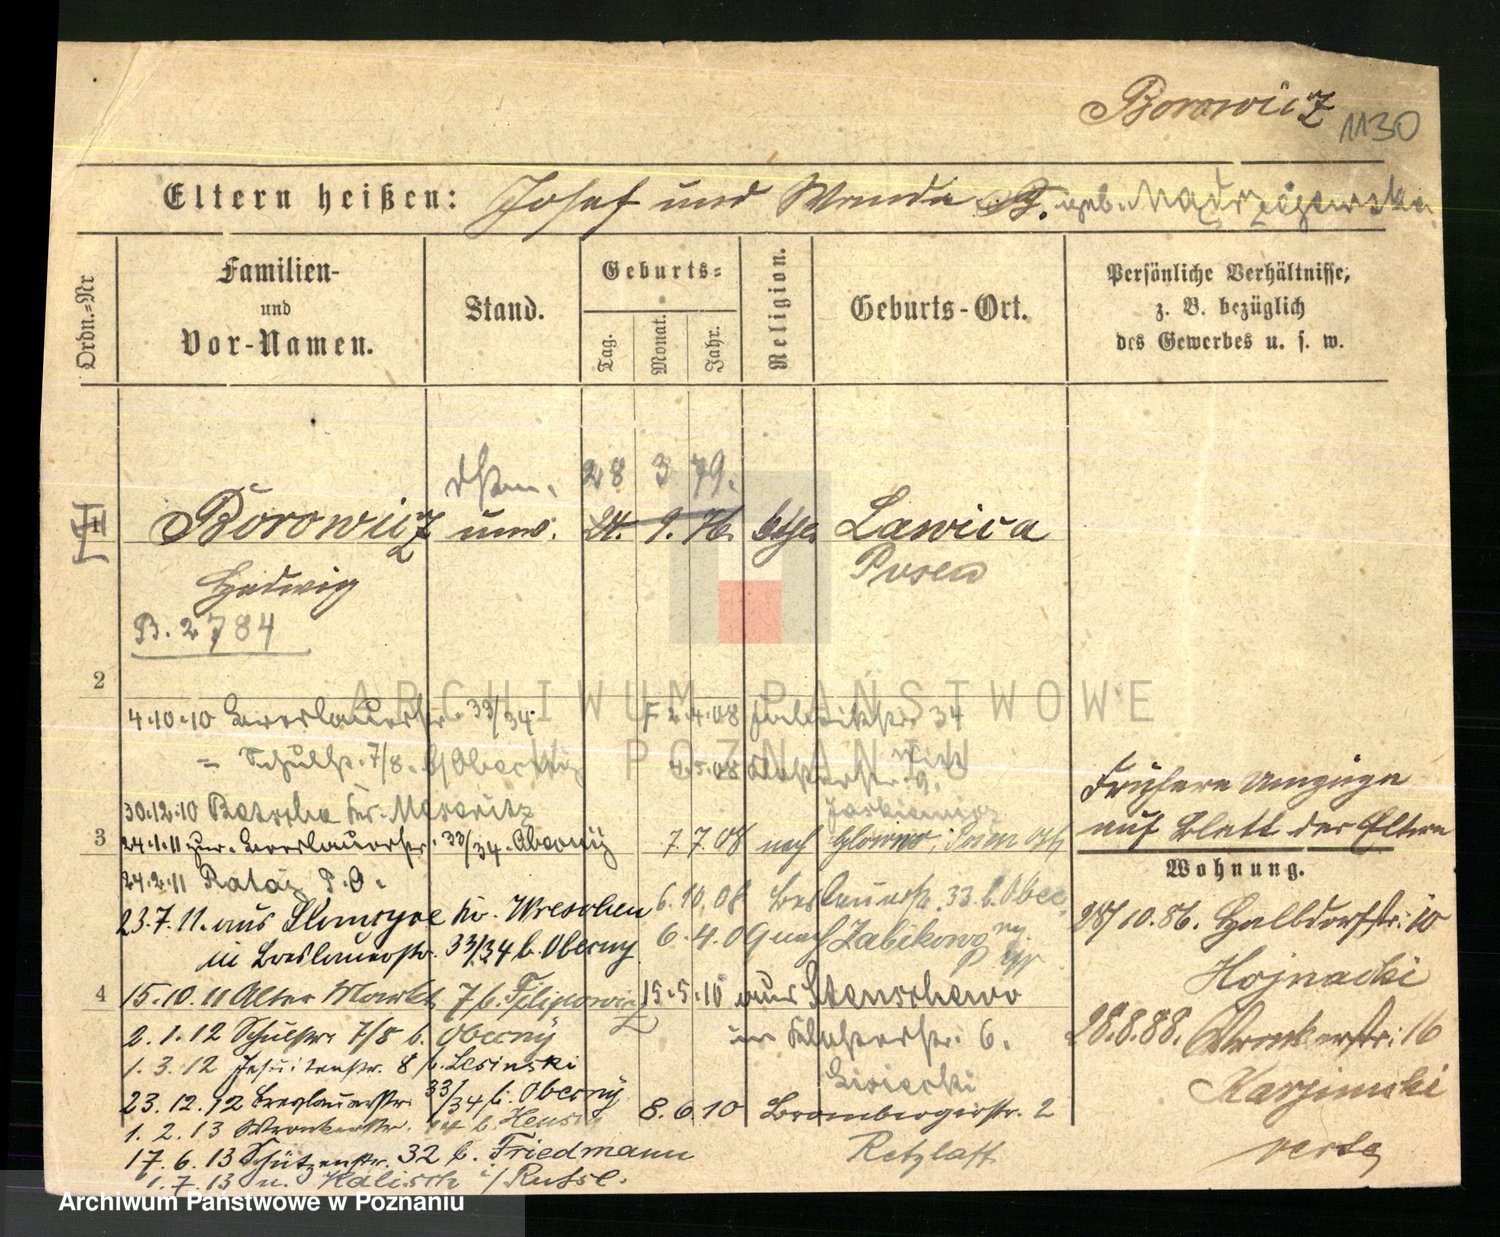 Borowicz
1130
Eltern heißen: Josef und Wanda B. geb.
Ordn.-Nr
Familien-
und
Vor-Namen.
Stand.
Geburts-
Tag.
Monat.
Jahr.
Religion.
Geburts-Ort.
Persönliche Verhältnisse,
z. B. bezüglich
des Gewerbes u. s. w.
28 3 79.
1 Borowicz unv. 24. 9. 76. kath. Lawica
Hedwig Posen
B. 2784
2
4.10.10 Breslauerstr. 33/34.
= Schulstr. 7/8. b/
30.12.10 Betsche Kr. Meseritz
3
24.1.11 zur. Breslauerstr. 33/34. Oberny
24.2.11 Rataj P.O.
23.7.11. aus Kr. Wreschen
in Breslauerstr. 33/34 b. Oberny
4
15.10.11 Alter Markt 7 b. Filipowicz
2.1.12 Schulstr. 7/8 b. Oberny
1.3.12 Jesuitenstr. 8 b. Lesinski
23.12.12 Breslauerstr. 33/34 b. Oberny
1.2.13 Wronkerstr. b.
17.6.13 Schützenstr. 32 b. Friedmann
1.7.13 n. Kalisch i/ Russl.
F 2.4.08 34
4.5.08 Klosterstr. 9.
7.7.08 nach Glowno, Posen Ost
6.10.08 Breslauerstr. 33 b. Ober
ny.
6.4.09 nach Zabikowo
15.5.10 aus Stenschewo
in Klosterstr. 6.
Lisiecki
8.6.10 Brombergerstr. 2
Retzlaff
Frühere Umzüge
auf Blatt der Eltern
Wohnung.
28/10.86. Halbdorfstr. 10
Hojnacki
28.8.88. Wronkerstr. 16
verte
ARCHIWUM PAŃSTWOWE
W POZNANIU
Archiwum Państwowe w Poznaniu